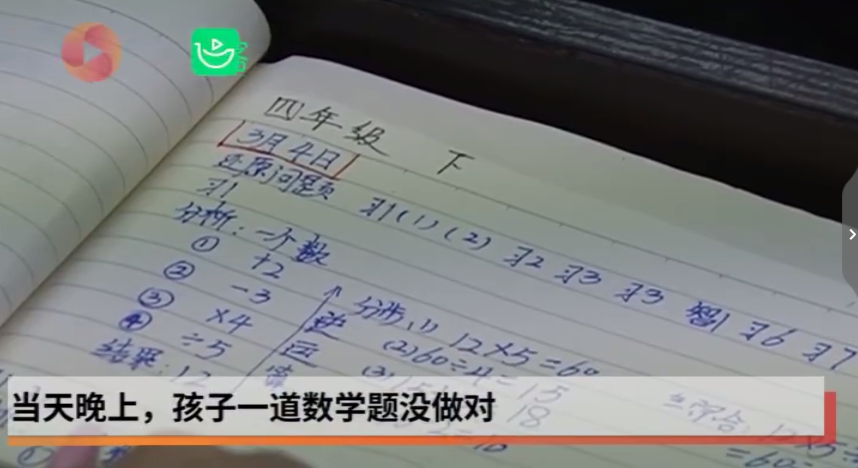 四年级 下
3月4日
还原问题 习1(1)(2) 习2 习3 习3 智1 习6 习7
习1
分析：一个数
① +2
② -3
③ ×4
④ ÷5
结果：12
逆运算
分步：(1) 12×5=60
(2) 60÷4=15
18
当天晚上，孩子一道数学题没做对